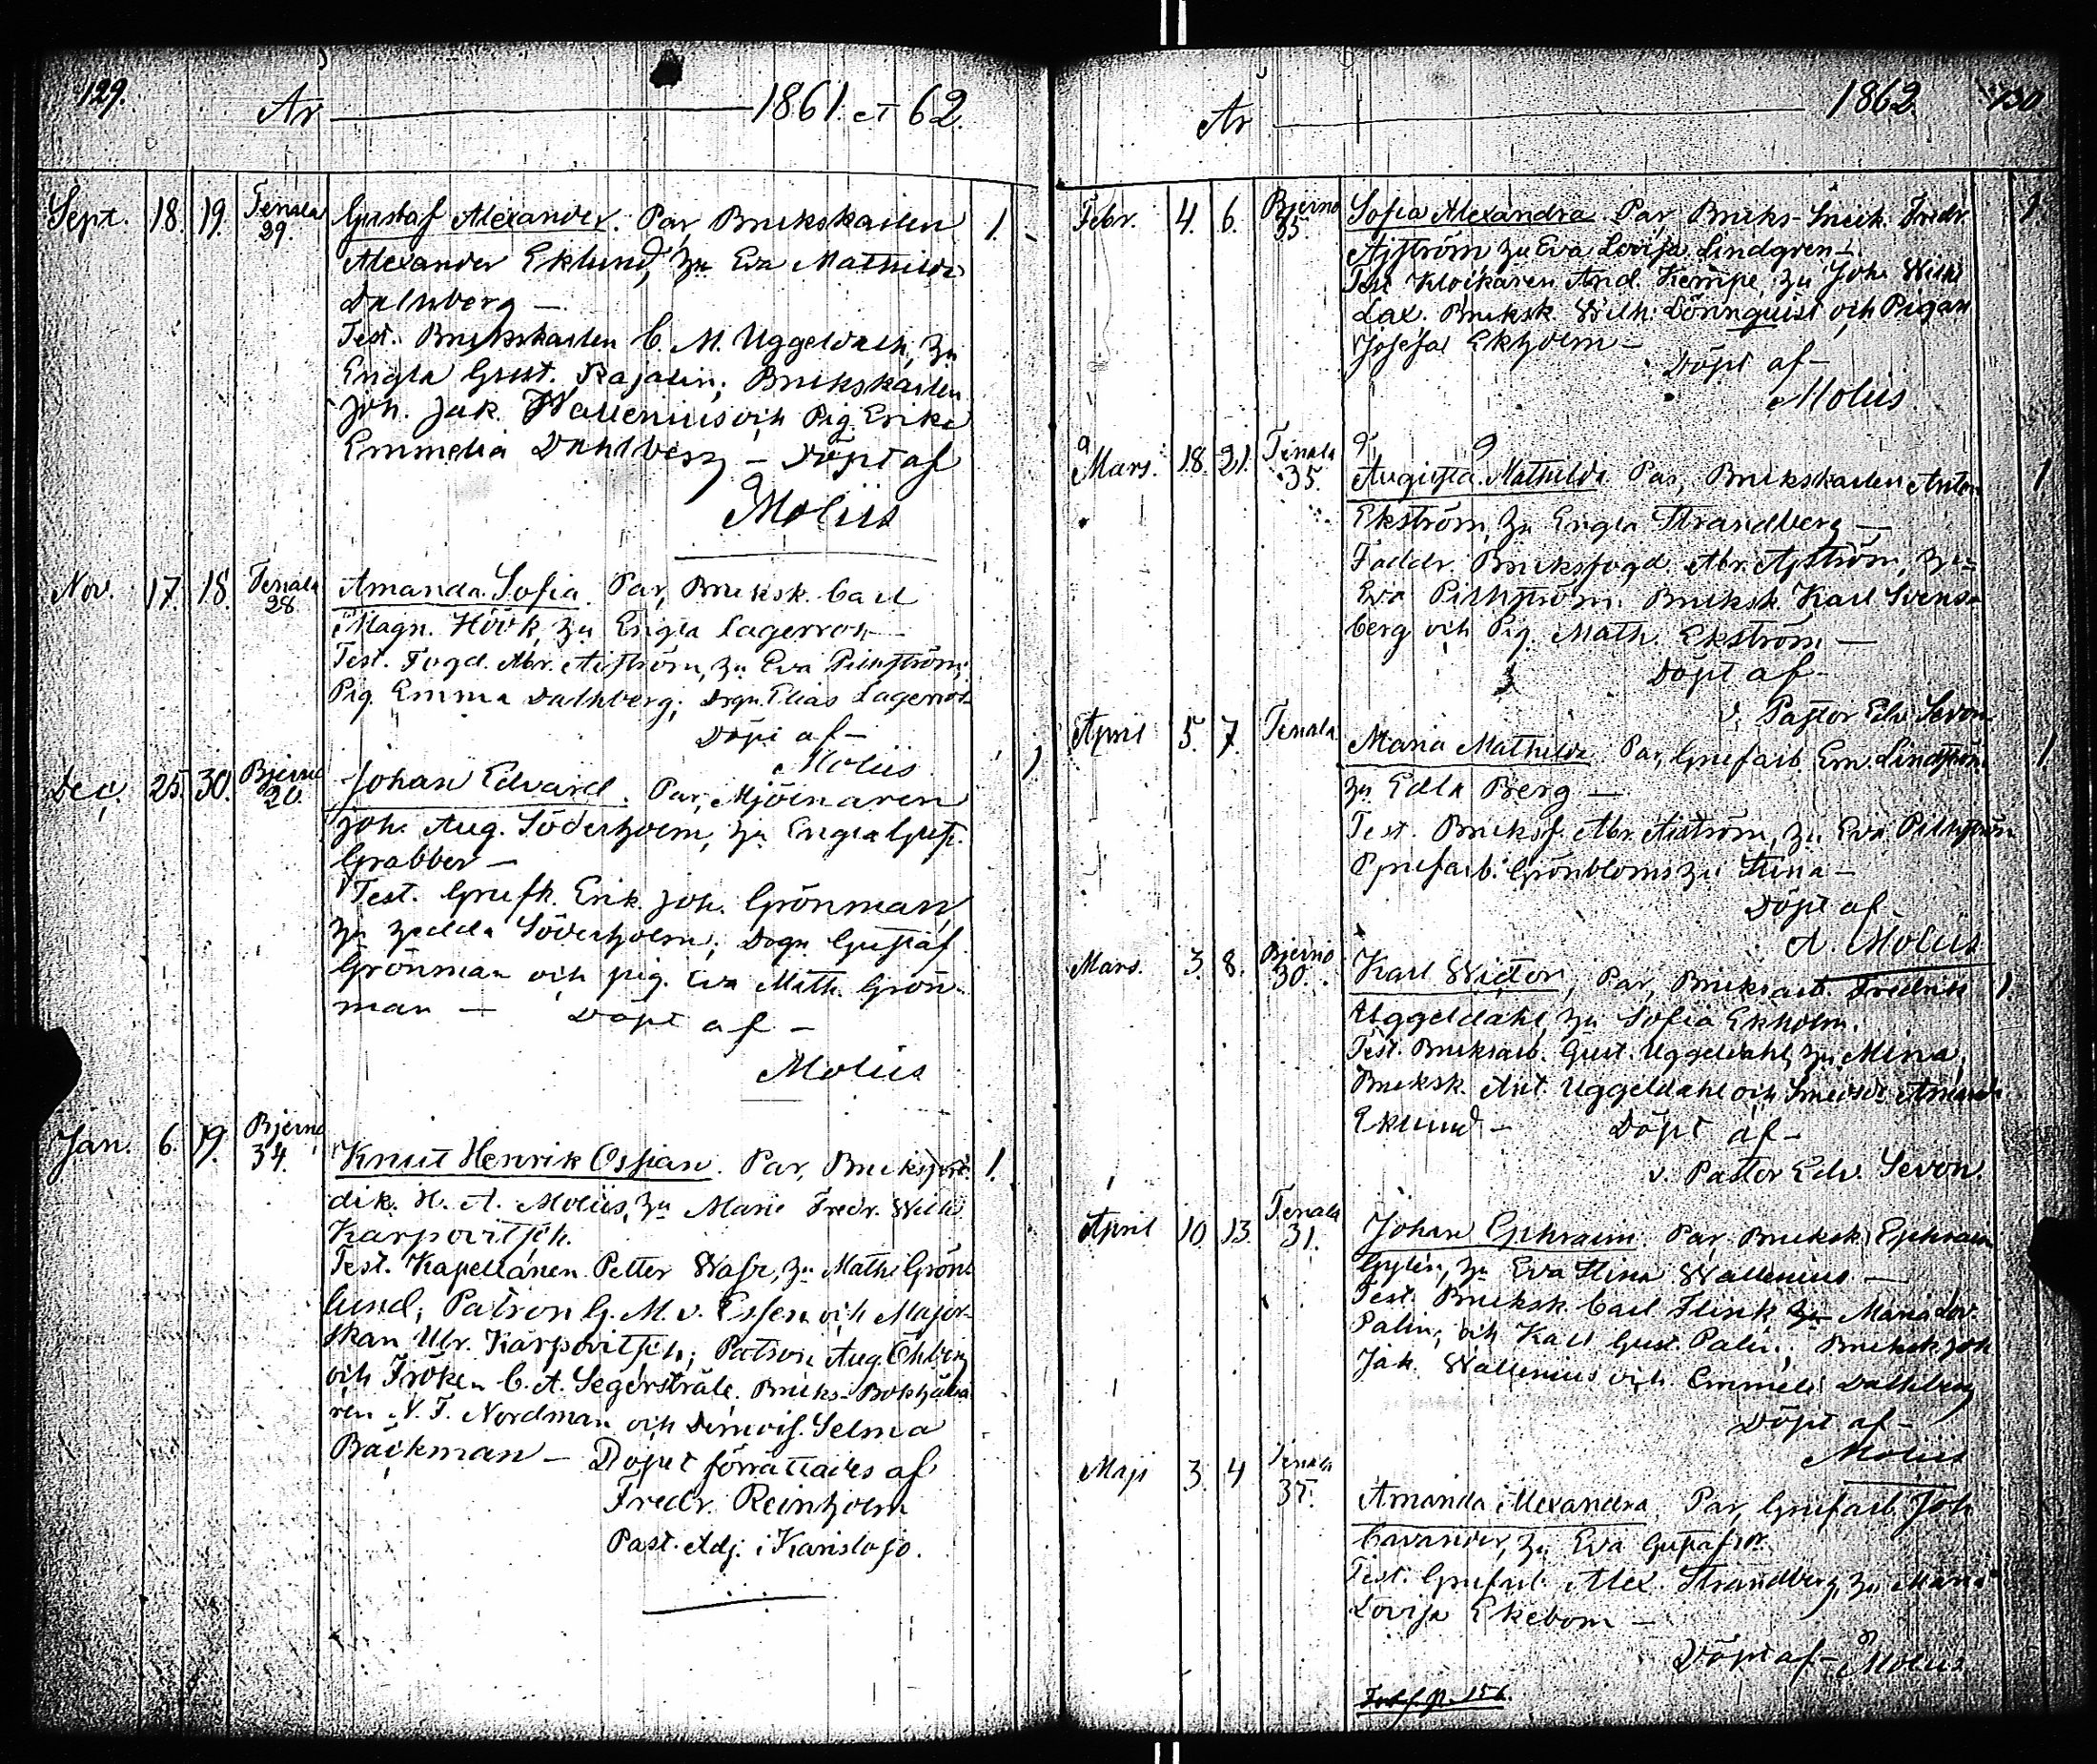 129.
År 1861 et 62.
Sept. 18. 19. Tenala 29. Gustaf Alexander. Par, Brukskarlen 1.
Alexander Eklund, hu Eva Mathilda
Dahlberg —
Test. Brukskarlen C. M. Uggeldahl, hu
Engla Gust. Rajalin; Brukskarlen
Joh. Jak. Wallenius och Pig. Erika
Emmelia Dahlberg — Döpt af
Moliis
Nov. 17. 18. Tenala 28. Amanda Sofia. Par, Bruksk. Carl
Magn. Höök, hu Engla Lagerros —
Test. Fogd. Abr. Aiström, hu Eva Pihlström;
Pig. Emma Dahlberg; Drgn. Elias Lagerros
Döpt af —
Moliis
Dec. 25. 30. Bjerno 20. Johan Edvard. Par, Mjölnaren 1
Joh. Aug. Söderholm, hu Engla Gust.
Grabber —
Test. Grufk. Erik Joh. Grönman,
hu Hedda Söderholm; Drgn. Gustaf
Grönman och pig. Eva Math. Grön-
man — Döpt af —
Moliis
Jan. 6. 19. Bjerno 34. Knut Henrik Ossian. Par, Bruks 1.
dik. H. A. Moliis, hu Marie Fredr. Wilh.
Karpovitsch.
Test. Kapellanen Petter Wafr, hu Math. Grön-
lund; Patron G. M. v. Essen och Major-
skan Ulr. Karpovitsch; Patron Aug. Öhberg
och Fröken C. A. Segerstråle. Bruks-Bokhålla-
ren N. F. Nordman och Demois. Selma
Bäckman — Dopet förrättades af
Fredr. Reinholm
Past. Adj. i Karislojo.
År 1862. 130.
Febr. 4. 6. Bjerno 35. Sofia Alexandra. Par, Bruks-Smeh. Fredr. 1
Ajström hu Eva Lovisa Lindgren —
Test. Klockaren And. Kempe, hu Joh. Wilh.
Lax. Bruksk. Wilh. Lönnquist och Pigan
Josefa Ekholm —
Döpt af —
Moliis
Mars. 18. 21. Tenala 35. Augusta Mathilda. Par, Brukskarlen Anton 1
Ekström, hu Engla Strandberg —
Faddr. Bruksfogd. Abr. Ajström, hu
Eva Pihlström. Bruksk. Karl Svens-
berg och Pig. Math. Ekström —
Döpt af —
v. Pastor Edv. Sevon
April 5. 7. Tenala Maria Mathilda. Par, Grufarb. Em. Lindström 1
hu Edla Berg —
Test. Bruksf. Abr. Aiström, hu Eva Pihlström
Grufarb. Grönbloms hu Stina —
Döpt af —
A. Moliis
Mars. 3. 8. Bjerno 30. Karl Wictor, Par, Bruksarb. Fredrik 1.
Uggeldahl, hu Sofia Ekholm.
Test. Bruksarb. Gust. Uggeldahl, hu Mina;
Bruksk. Ant. Uggeldahl och Amanda
Eklund — Döpt af —
v. Pastor Edv. Sevon.
April 10. 13. Tenala 31. Johan Ephraim. Par, Bruksk. Ephraim
Gylén, hu Eva Stina Wallenius —
Test. Bruksk. Carl Flink hu Maria Lov.
Palin, och Karl Gust. Palin; Bruksk. Joh.
Jak. Wallenius och Emmeli Dahlberg
Döpt af —
Moliis
Maji 3. 4 Tenala 37. Amanda Alexandra. Par, Grufarb. Joh.
Cavander, hu Eva Gustafsdr.
Test. Grufarb. Alex. Strandberg, hu Maria
Lovisa Ekebom —
Döpt af — Moliis
Forts. p. 156.